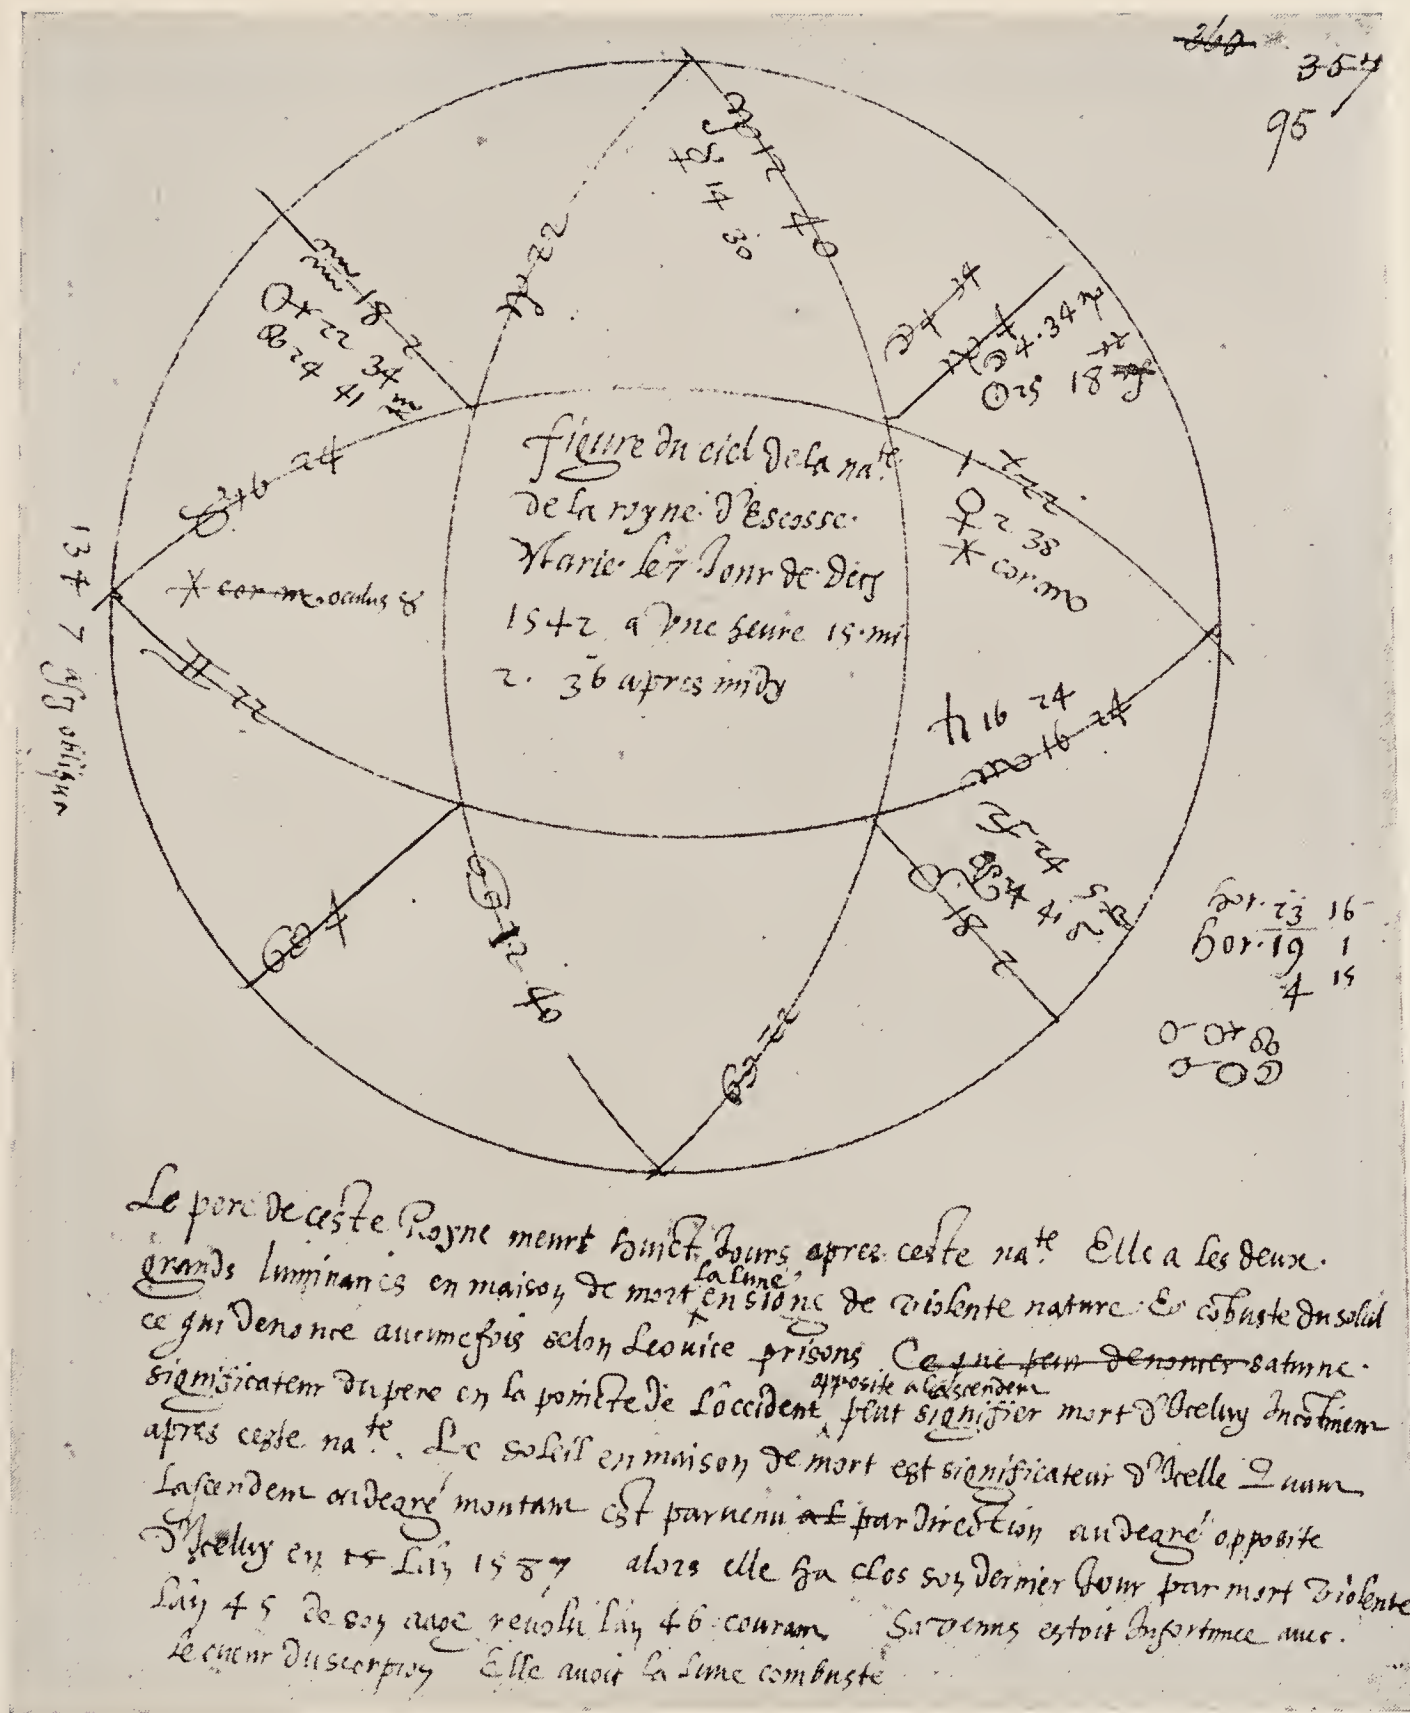 360
357
95
♑ 12 40
☿ 14 30
♑ 22
♒ 18 2
22 34
24 41
☽ 4 34
♐ 4
☽ 4 . 34
☉ 25 18 ♐
♉ 16 24
1 ♐ 22
♀ 2 38
cor ♏
oculus ♉
134 7 asc obliqua
♊ 22
♄ 16 24
♏ 16 24
24 5
24 41
♌ 18 2
♋ 4
♋ 12 40
♋ 22
hor. 23 16
hor. 19 1
4 15
figure du ciel de la na.te
de la royne d'Escosse.
Marie. le 7 Jour de dec
1542 a vne heure 15. mi
2. 36 apres midy
Le pere de ceste Royne meurt huict Jours apres ceste na.te Elle a les deux.
la lune
grands luminaires en maison de mort en signe de violente nature. Et cobuste du soleil
ce qui denonce aucunefois selon Leouice prisons Ce que peut denoncer saturne.
opposite a l'ascendent
significateur du pere en la poincte de L'occident peut signifier mort d'Iceluy Incotinent
apres ceste na.te. Le soleil en maison de mort est significateur d'Icelle Quant
Lascendent ou degré montant est paruenu al par direction au degré opposite
d'Iceluy en L'an 1587 alors elle ha clos son dernier Jour par mort violente
L'an 45 de son aage reuolu l'an 46 courant Sa Venus estoit Infortunee auec.
le cueur du scorpion Elle auoit la lune combuste